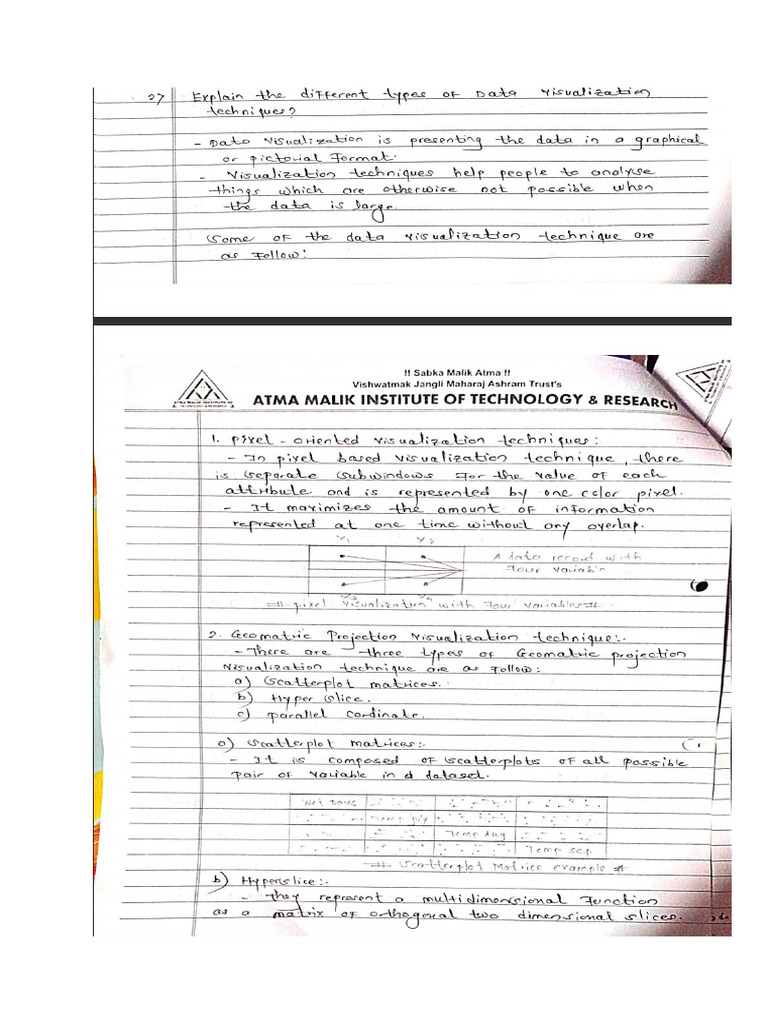 27 Explain the different types of Data Visualization
techniques?
- Data Visualization is presenting the data in a graphical
or pictorial Format.
- Visualization techniques help people to analyse
things which are otherwise not possible when
the data is large.
Some of the data visualization technique are
as Follow:
!! Sabka Malik Atma !!
Vishwatmak Jangli Maharaj Ashram Trust's
ATMA MALIK INSTITUTE OF TECHNOLOGY & RESEARCH
1. Pixel - oriented visualization techniques:
- In pixel based visualization technique, there
is separate subwindows for the value of each
attribute and is represented by one color pixel.
- It maximizes the amount of information
represented at one time without any overlap.
V1 V2
A data record with
Four variable
V3 V4
=# pixel visualization with Four variables #
2. Geomatric Projection visualization technique:-
- There are three types of Geomatric projection
visualization technique are as follow:
a) Scatterplot matrices.
b) Hyper slice.
c) parallel cordinate.
a) Scatterplot matrices:-
- It is composed of scatterplots of all possible
pair of variable in a dataset.
Wet Days
Temp July
Temp Aug
Temp Sep
=# Scatterplot Matrice example #
b) Hyperslice:-
- They represent a multidimensional Function
as a matrix of orthogonal two dimensional slices.